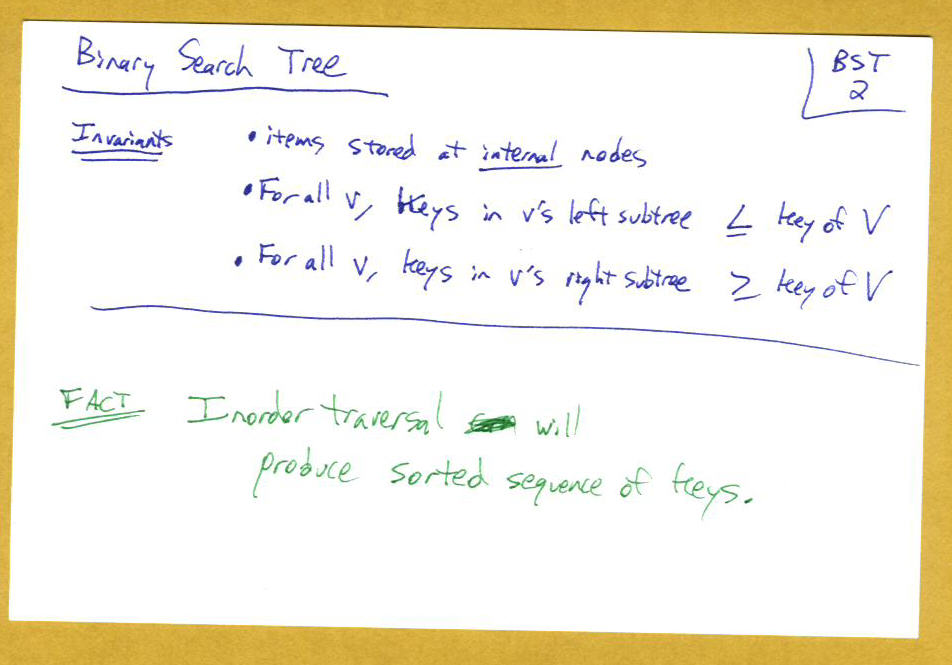 Binary Search Tree
BST
2
Invariants
• items stored at internal nodes
• For all v, keys in v's left subtree ≤ key of V
• For all v, keys in v's right subtree ≥ key of V
FACT Inorder traversal will
produce sorted sequence of keys.